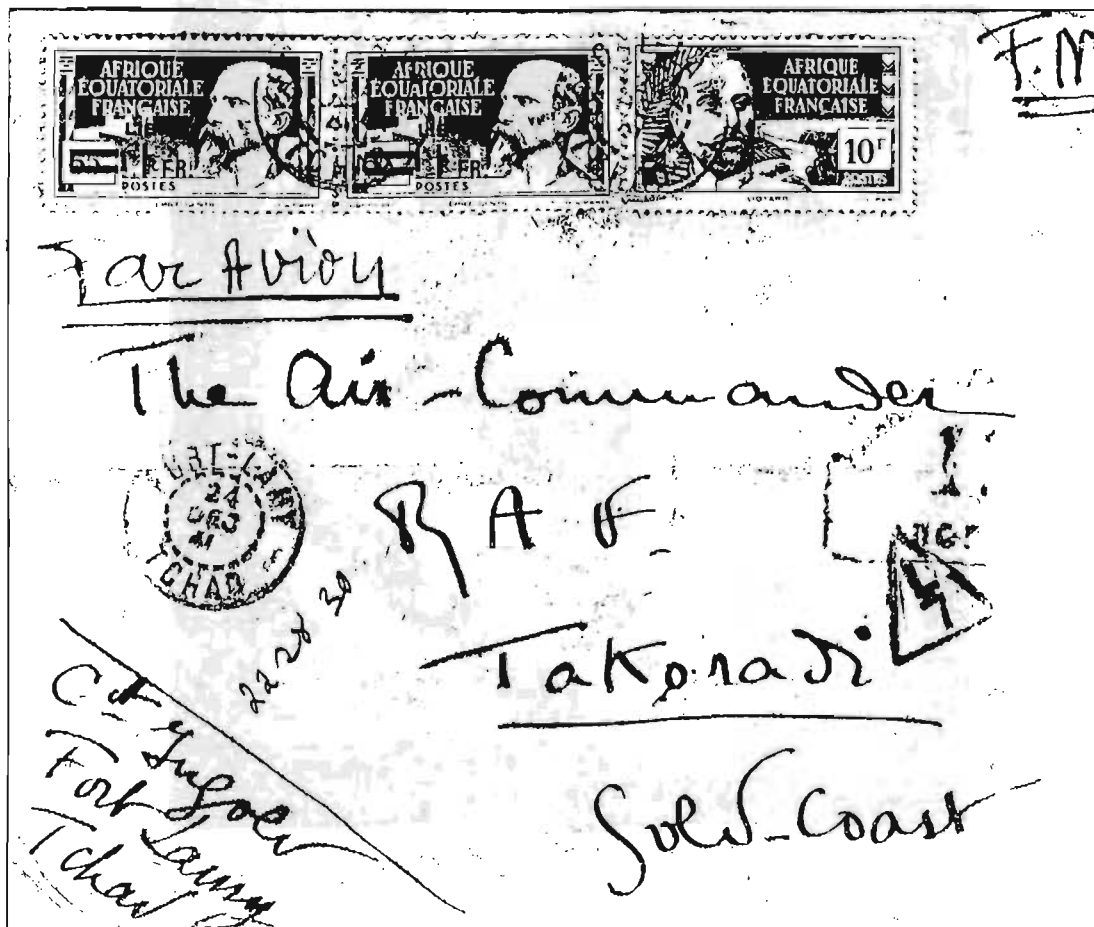 AFRIQUE
ÉQUATORIALE
FRANÇAISE
POSTES
AFRIQUE
ÉQUATORIALE
FRANÇAISE
POSTES
AFRIQUE
ÉQUATORIALE
FRANÇAISE
10F
POSTES
F.M
Par Avion
The Air-Commander
FORT-LAMY
24
DEC
41
TCHAD
R A F
Takoradi
4
Gold-Coast
22 28 30
Fort Lamy
Tchad